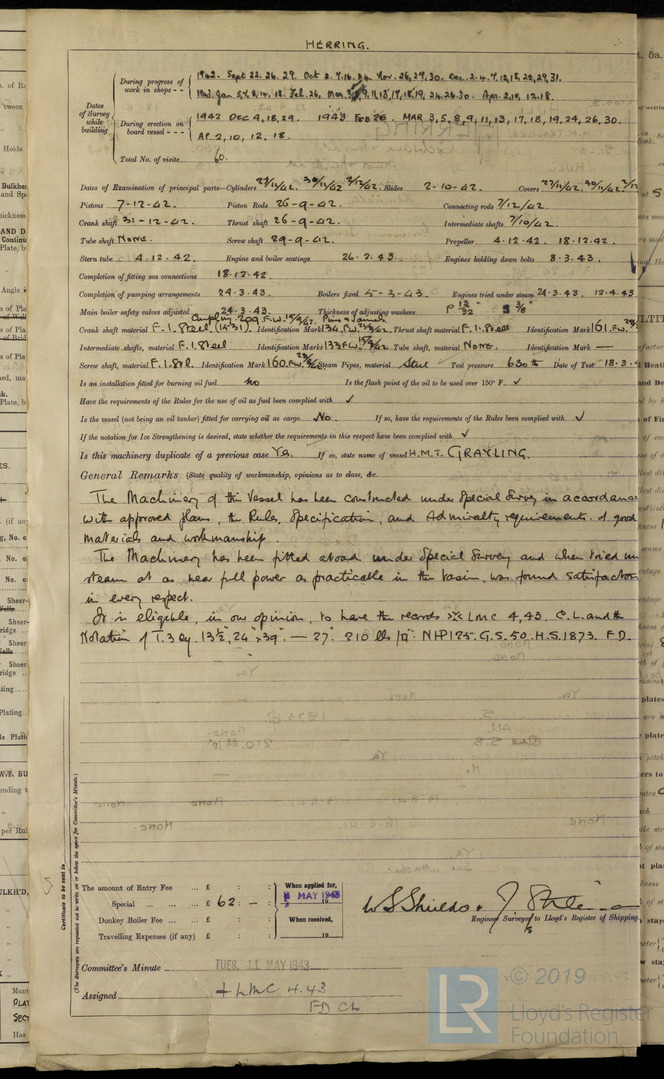 HERRING.
Dates of Survey while building
During progress of work in shops - -
1942. Sept 22. 26. 29. Oct 2. 7. 16. Nov. 26, 27, 30. Dec. 2. 4. 7, 12, 18, 22, 29, 31.
1943. Jan 5. 7. 8. 14. 18. Feb. 26. Mar. 9. 11, 13, 17, 18, 19, 24. 26. 30. Apr. 2, 10, 12. 18.
During erection on board vessel - - -
1942 DEC 4, 18, 29. 1943 FEB 26. MAR 3, 5, 8, 9, 11, 13, 17, 18, 19, 24, 26, 30.
AP. 2, 10, 12, 18.
Total No. of visits 60.
Dates of Examination of principal parts—Cylinders 27/11/42. 30/11/42 2/12/42. Slides 2-10-42. Covers 27/11/42. 30/11/42 2/12
Pistons 7-12-42. Piston Rods 26-9-42. Connecting rods 7/12/42.
Crank shaft 31-12-42. Thrust shaft 26-9-42. Intermediate shafts 7/10/42.
Tube shaft None. Screw shaft 29-9-42. Propeller 4.12.42. 18.12.42.
Stern tube 4.12.42. Engine and boiler seatings 26.2.43. Engines holding down bolts 8.3.43.
Completion of fitting sea connections 18.12.42.
Completion of pumping arrangements 24.3.43. Boilers fixed 5-3-43. Engines tried under steam 24.3.43. 12.4.43
Main boiler safety valves adjusted 24.3.43. Thickness of adjusting washers P 13/32" S 3/8"
Crank shaft material F.I. Steel Identification Mark Thrust shaft material F.I. Steel Identification Mark 161. F.W.
Intermediate shafts, material F.I. Steel Identification Marks 133 F.W. Tube shaft, material NONE. Identification Mark —
Screw shaft, material F.I. Stl. Identification Mark 160. F.W. Steam Pipes, material Steel Test pressure 630 lb Date of Test 18.3.4
Is an installation fitted for burning oil fuel No Is the flash point of the oil to be used over 150° F. ✓
Have the requirements of the Rules for the use of oil as fuel been complied with ✓
Is the vessel (not being an oil tanker) fitted for carrying oil as cargo No. If so, have the requirements of the Rules been complied with ✓
If the notation for Ice Strengthening is desired, state whether the requirements in this respect have been complied with ✓
Is this machinery duplicate of a previous case Yes. If so, state name of vessel H.M.T. GRAYLING.
General Remarks (State quality of workmanship, opinions as to class, &c.
The Machinery of this Vessel has been constructed under Special Survey in accordance
with approved plans, the Rules, Specification, and Admiralty requirements. of good
materials and workmanship.
The Machinery has been fitted aboard under Special Survey and when tried in
steam at as near full power as practicable in the basin, was found satisfactory
in every respect.
It is eligible, in our opinion, to have the records LMC 4,43. C.L. and the
Notation of T.3 cy. 13½", 24" 39" — 27" 210 lbs/□" NHP 125. G.S. 50. H.S. 1873. F.D.
Certificate to be sent to
(The Surveyors are requested not to write on or below the space for Committee's Minute.)
The amount of Entry Fee ... £ : :
Special ... ... ... £ 62 : — :
Donkey Boiler Fee ... ... £ : :
Travelling Expenses (if any) £ : :
When applied for,
MAY 1943
19
When received,
19
W S Shields &
Engineer Surveyors to Lloyd's Register of Shipping
Committee's Minute TUES. 11 MAY 1943
Assigned + LMC 4.43
FD CL
LR
© 2019
Lloyd's Register
Foundation